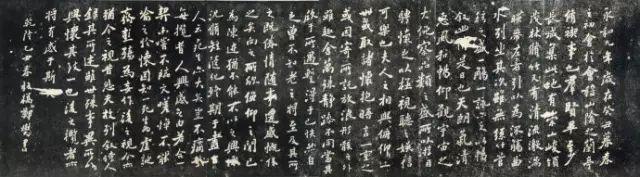 永和九年歲在癸丑暮春
初會于會稽山陰之蘭亭
脩禊事也羣賢畢至少
長咸集此地有崇山峻領
茂林脩竹又有清流激湍
暎帶左右引以為流觴曲
水列坐其次雖無絲竹管
弦之盛一觴一詠亦足以暢
敘幽情是日也天朗氣清
惠風和暢仰觀宇宙之
大俯察品類之盛所以遊目
騁懷足以極視聽之娛信
可樂也夫人之相與俯仰一
世或取諸懷抱晤言一室之內
或因寄所託放浪形骸之外
雖趣舍萬殊靜躁不同當其
欣于所遇暫得于己快然自
足曾不知老之將至及其所
之既倦情隨事遷感慨係
之矣向之所欣俛仰之間已
為陳迹猶不能不以之興懷
況脩短隨化終期于盡古
人云死生亦大矣豈不痛哉
每攬昔人興感之由若合一
契未嘗不臨文嗟悼不能
喻之於懷固知一死生為虛誕
齊彭殤為妄作後之視今亦
由今之視昔悲夫故列敘時人
錄其所述雖世殊事異所以
興懷其致一也後之攬者亦
將有感于斯文
乾隆 板橋鄭燮書